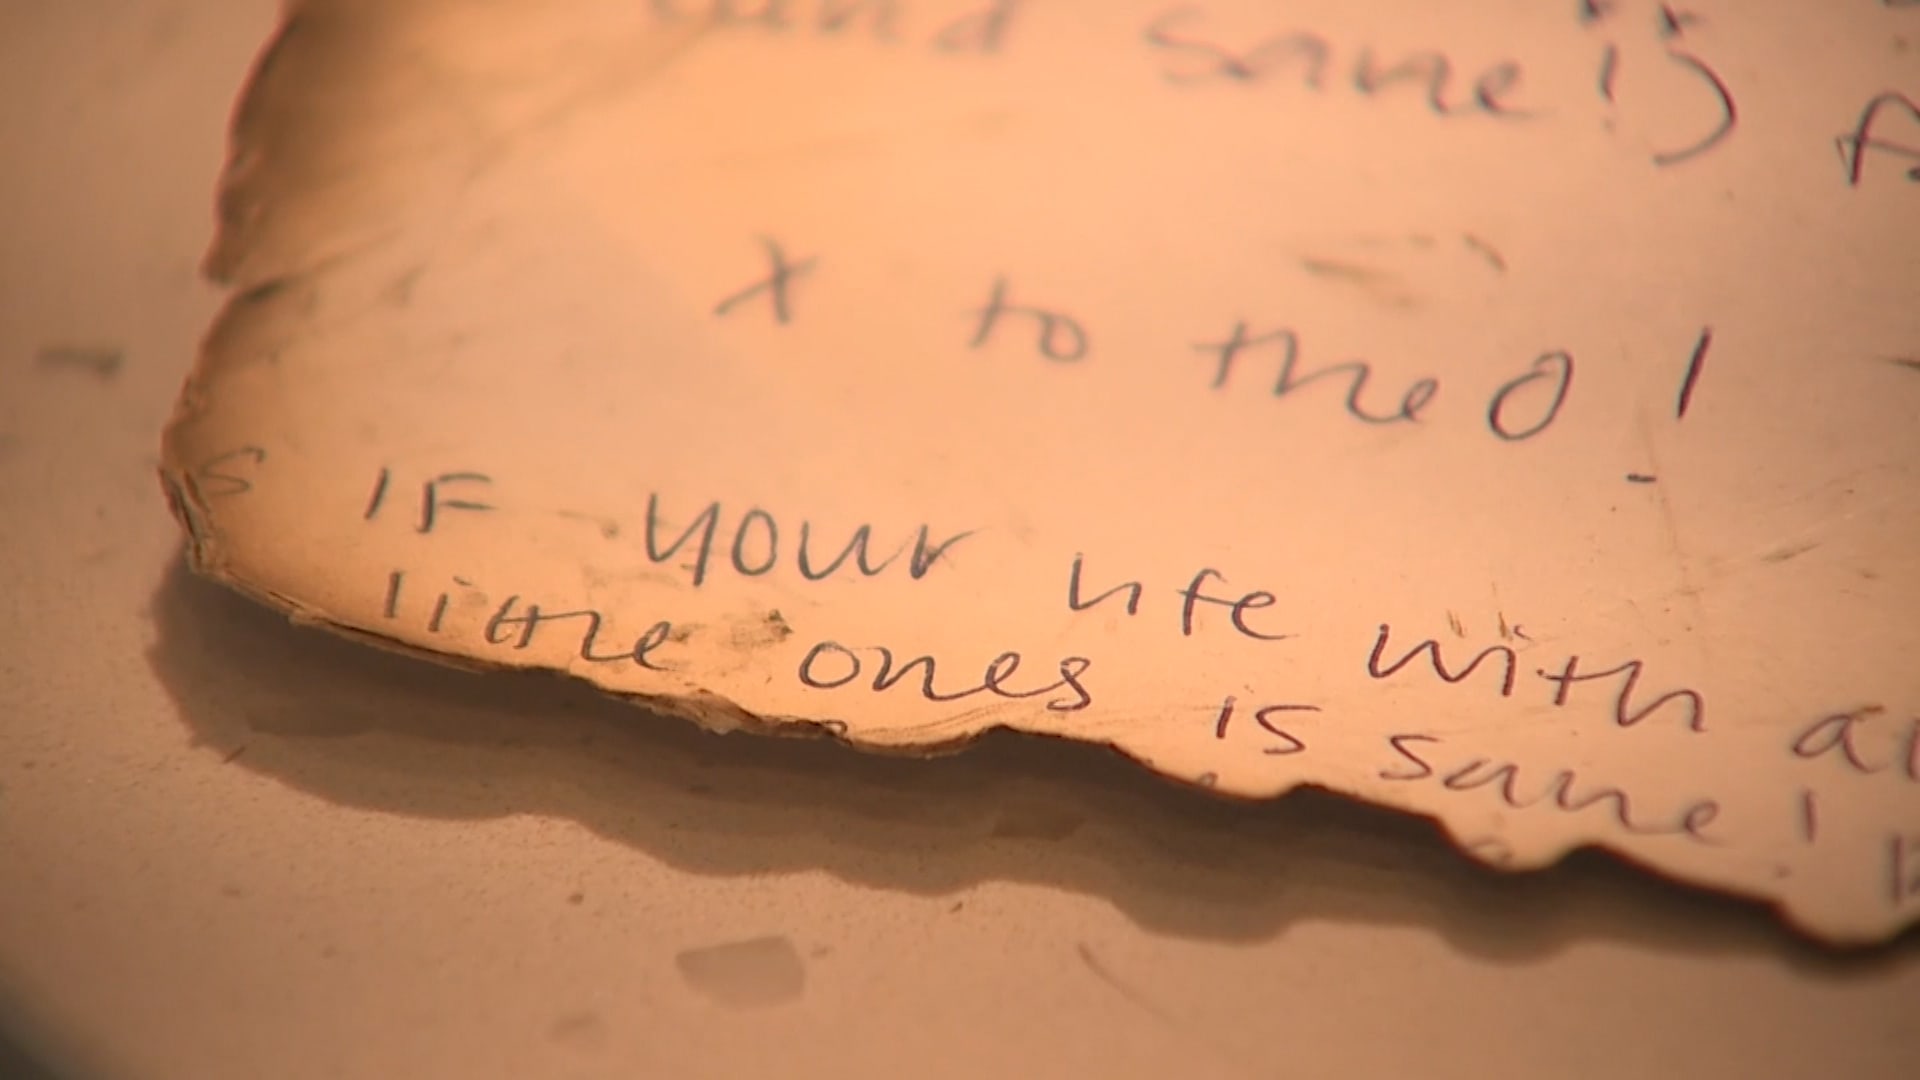 and sane!)
x to the O!
S IF your life with
little ones is sane!